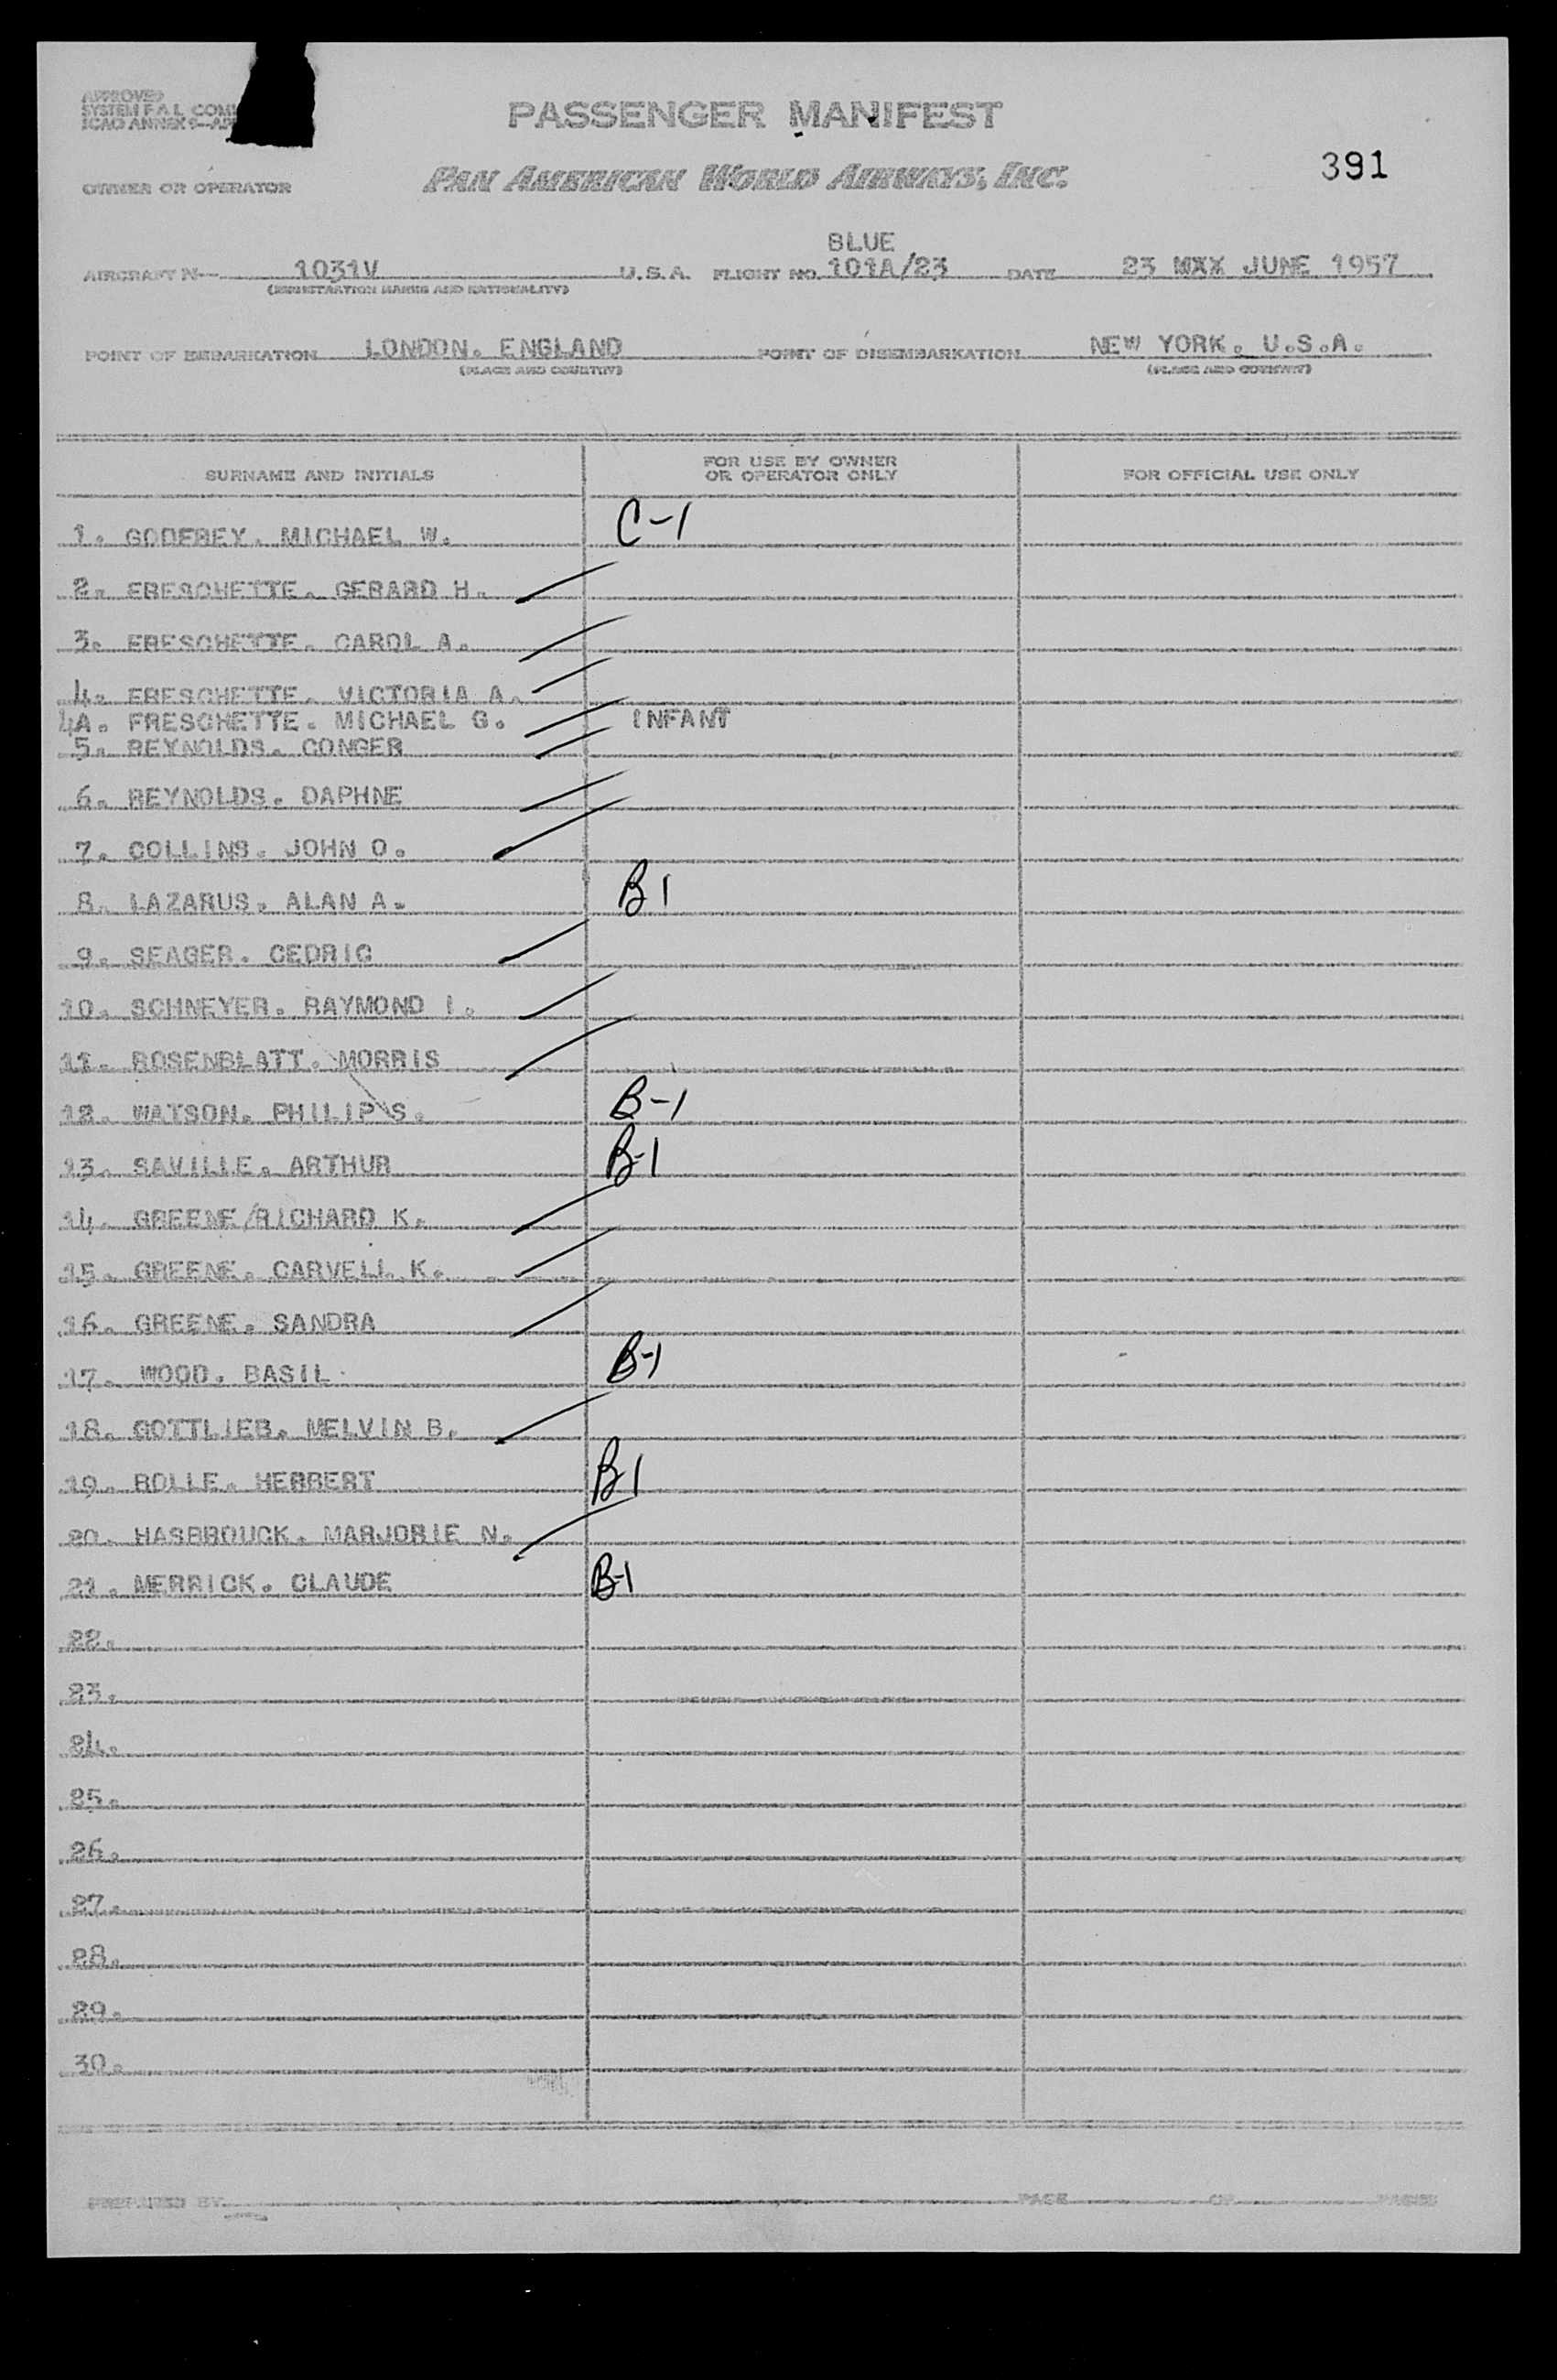 APPROVED
SYSTEM F A L COM
ICAO ANNEX 9-AP
PASSENGER MANIFEST
391
OWNER OR OPERATOR PAN AMERICAN WORLD AIRWAYS, INC.
BLUE
AIRCRAFT N— 1031V U.S.A. FLIGHT NO. 101A/23 DATE 23 MXX JUNE 1957
(REGISTRATION MARKS AND NATIONALITY)
POINT OF EMBARKATION LONDON. ENGLAND POINT OF DISEMBARKATION NEW YORK. U.S.A.
(PLACE AND COUNTRY) (PLACE AND COUNTRY)
SURNAME AND INITIALS FOR USE BY OWNER OR OPERATOR ONLY FOR OFFICIAL USE ONLY
1. GODFREY. MICHAEL W. C-1
2. FRESCHETTE. GERARD H.
3. FRESCHETTE. CAROL A.
4. FRESCHETTE. VICTORIA A.
4A. FRESCHETTE. MICHAEL G. INFANT
5. REYNOLDS. CONGER
6. REYNOLDS. DAPHNE
7. COLLINS. JOHN O.
8. LAZARUS. ALAN A. B1
9. SEAGER. CEDRIC
10. SCHNEYER. RAYMOND I.
11. ROSENBLATT. MORRIS
12. WATSON. PHILIP S. B-1
13. SAVILLE. ARTHUR B-1
14. GREENE/RICHARD K.
15. GREENE. CARVELL K.
16. GREENE. SANDRA
17. WOOD. BASIL B-1
18. GOTTLIEB. MELVIN B.
19. ROLLE. HERBERT B1
20. HASBROUCK. MARJORIE N.
21. MERRICK. CLAUDE B-1
22.
23.
24.
25.
26.
27.
28.
29.
30.
PREPARED BY PAGE OF PAGES